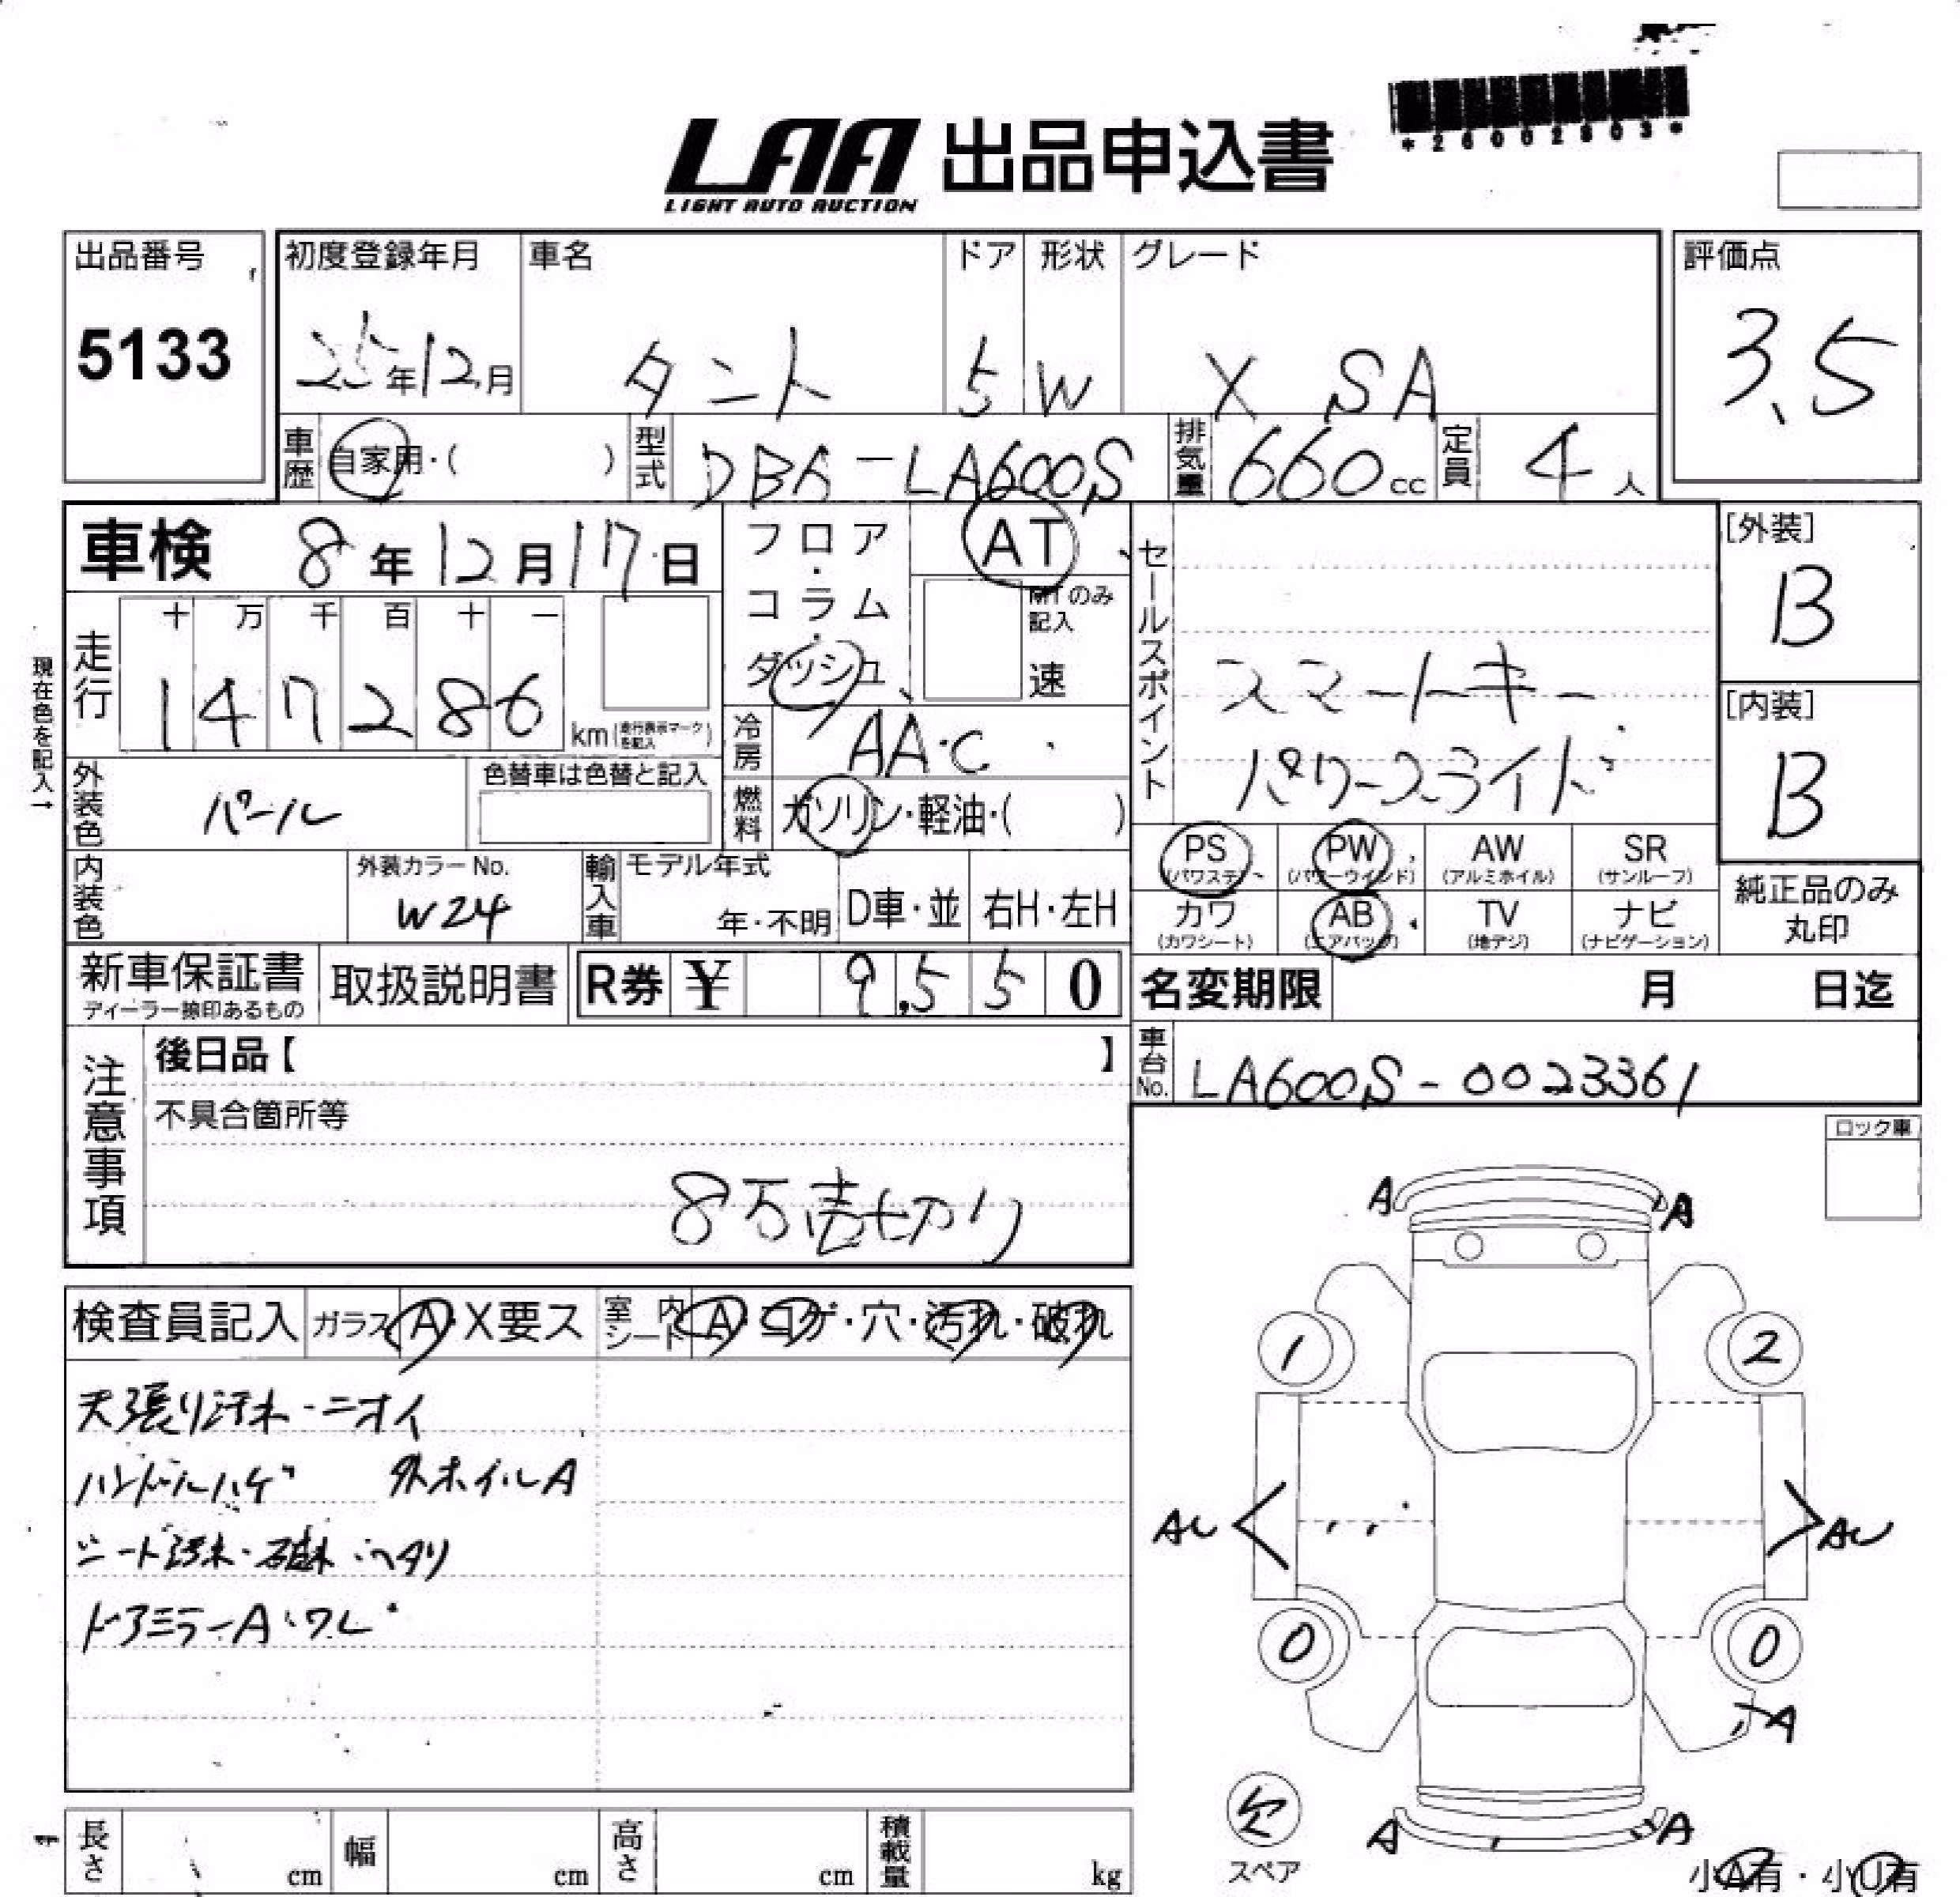 *26002803*
LAA 出品申込書
LIGHT AUTO AUCTION
出品番号
5133
初度登録年月
25年12月
車名
タント
ドア
5
形状
W
グレード
X SA
評価点
3.5
車歴
自家用・( )
型式
DBA-LA600S
排気量
660cc
定員
4人
車検 8年12月17日
フロア・コラム・ダッシュ
AT
MTのみ記入
速
セールスポイント
スマートキー
パワースライド
[外装]
B
[内装]
B
現在色を記入→
走行
十 万 千 百 十 一
1 4 7 2 8 6
km(走行表示マークを記入)
冷房
AA.C
燃料
ガソリン・軽油・( )
外装色
パール
色替車は色替と記入
内装色
外装カラーNo.
W24
輸入車
モデル年式
年・不明
D車・並
右H・左H
PS
(パワステ)
PW
(パワーウインド)
AW
(アルミホイル)
SR
(サンルーフ)
カワ
(カワシート)
AB
(エアバッグ)
TV
(地デジ)
ナビ
(ナビゲーション)
純正品のみ
丸印
新車保証書
ディーラー捺印あるもの
取扱説明書
R券 ¥ 9,550
名変期限 月 日迄
車台No.
LA600S-0023361
注意事項
後日品【 】
不具合箇所等
8万売切り
ロック車
検査員記入
ガラス A・X要ス
室内シート A・コゲ・穴・汚れ・破れ
天張り汚れ・ニオイ
ハンドルハゲ 外ホイルA
シート汚れ・破れ・ヘタリ
ドアミラーA・ワレ
A
A
1
2
AU
AU
0
0
A
欠
スペア
A
A
小A有・小U有
長さ cm
幅 cm
高さ cm
積載量 kg